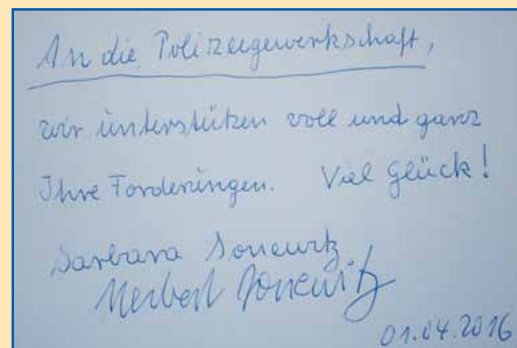 An die Polizeigewerkschaft,
wir unterstützen voll und ganz
Ihre Forderungen. Viel Glück!
Barbara
Herbert
01.04.2016